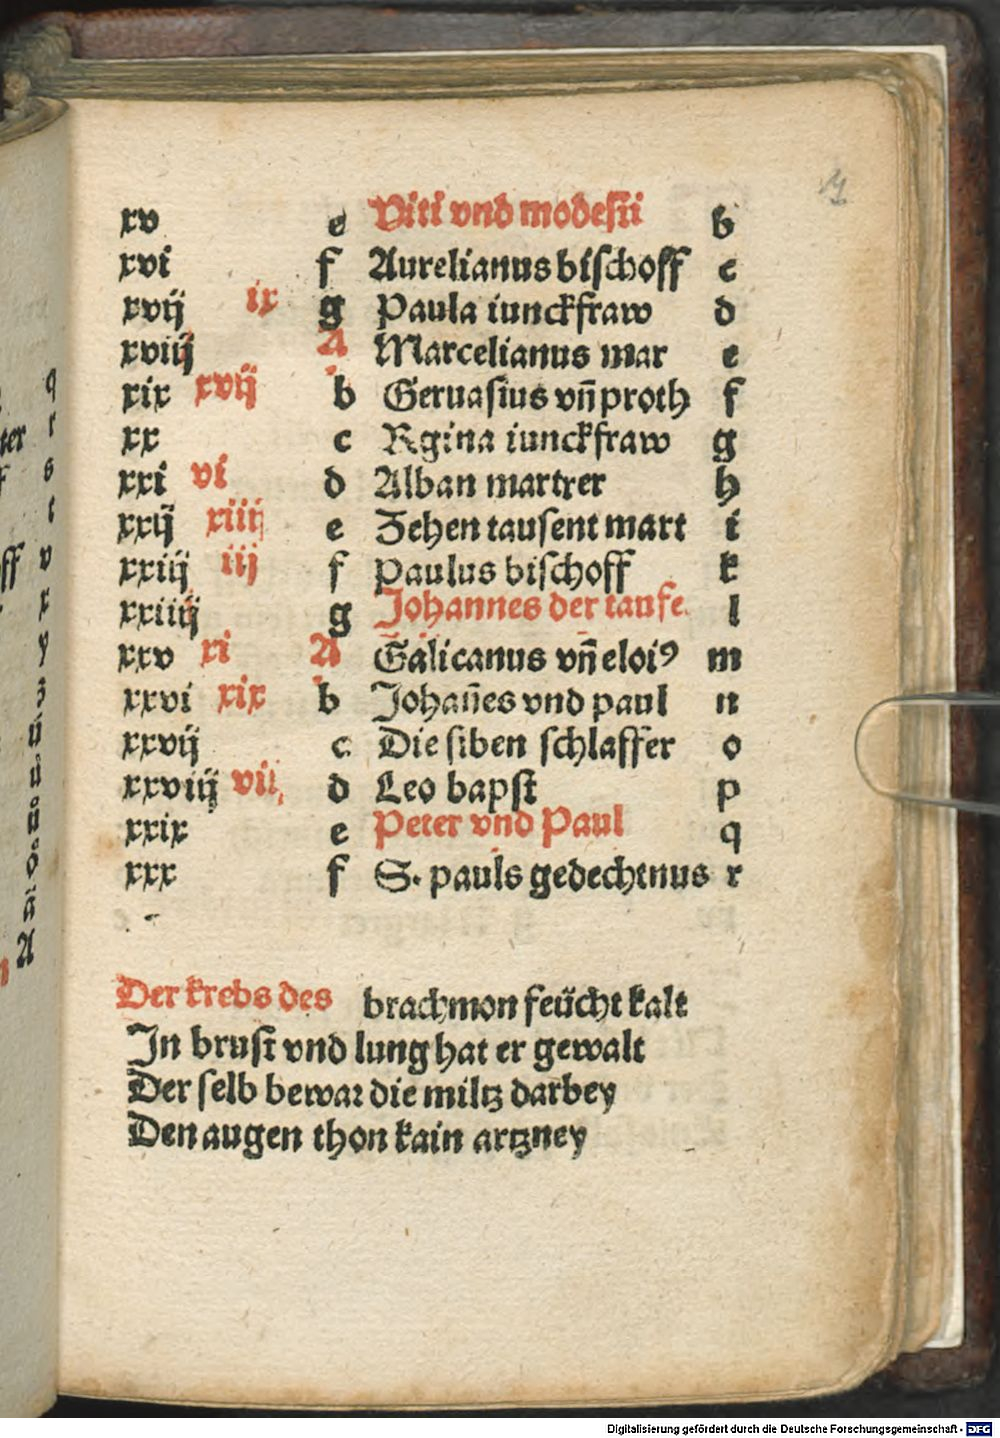 xv e Viti vnd modesti b
xvi f Aurelianus bischoff c
xvij ix g Paula iunckfraw d
xviij A Marcelianus mar e
xix xvij b Geruasius vn̄ proth f
xx c Rgina iunckfraw g
xxi vi d Alban martrer h
xxij xiiij e Zehen tausent mart i
xxiij iij f Paulus bischoff k
xxiiij g Johannes der taufe l
xxv xi A Galicanus vn̄ eloiꝰ m
xxvi xix b Johan̄es vnd paul n
xxvij c Die siben schlaffer o
xxviij vii d Leo bapst p
xxix e Peter vnd Paul q
xxx f S. pauls gedechtnus r
Der krebs des brachmon feücht kalt
In brust vnd lung hat er gewalt
Der selb bewar die miltz darbey
Den augen thon kain artzney
Digitalisierung gefördert durch die Deutsche Forschungsgemeinschaft - DFG